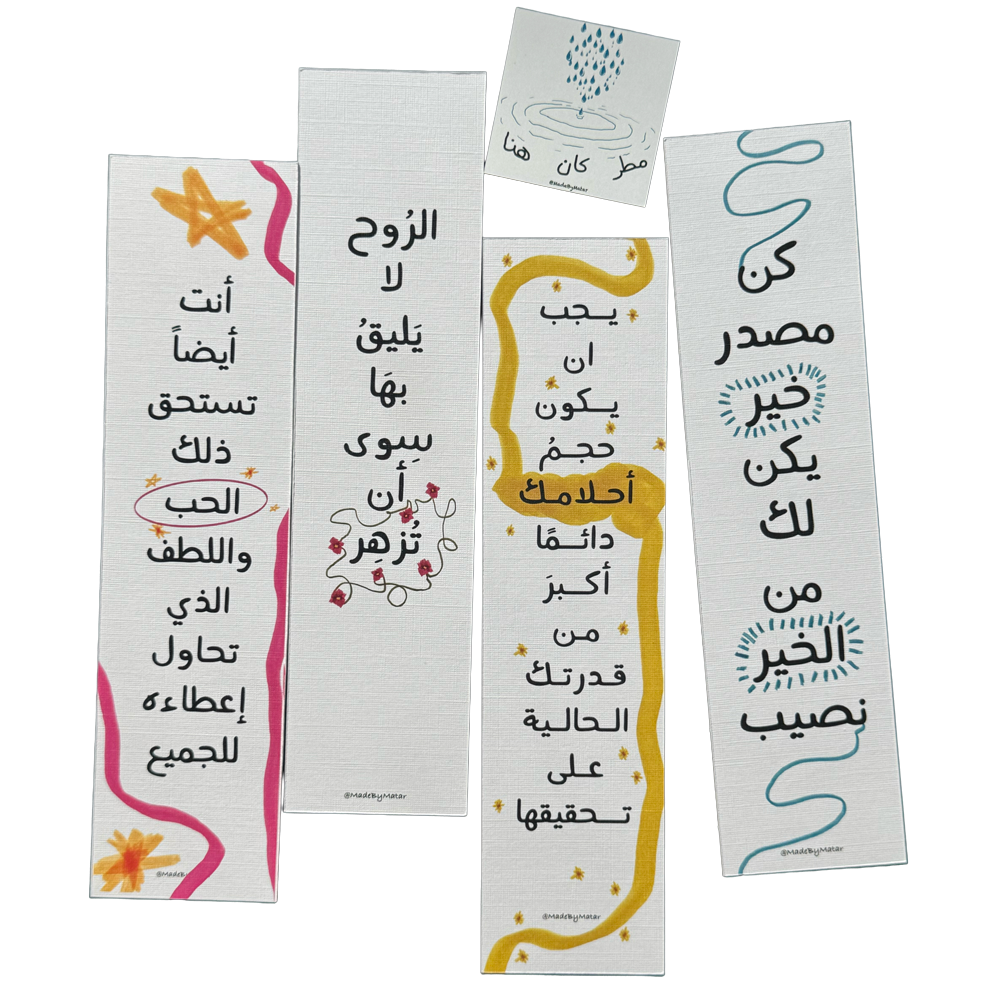 مطر كان هنا
@MadeByMatar
كن
مصدر
خير
يكن
لك
من
الخير
نصيب
@MadeByMatar
يــجب
ان
يــكون
حجمُ
أحلامك
دائــمًا
أكــبرَ
من
قدرتك
الـحالية
عـلى
تــحقيقها
@MadeByMatar
الرُوح
لا
يَليقُ
بهَا
سِوى
أن
تُزهِر
@MadeByMatar
أنت
أيضاً
تستحق
ذلك
الحب
واللطف
الذي
تحاول
إعطاءه
للجميع
@MadeBy